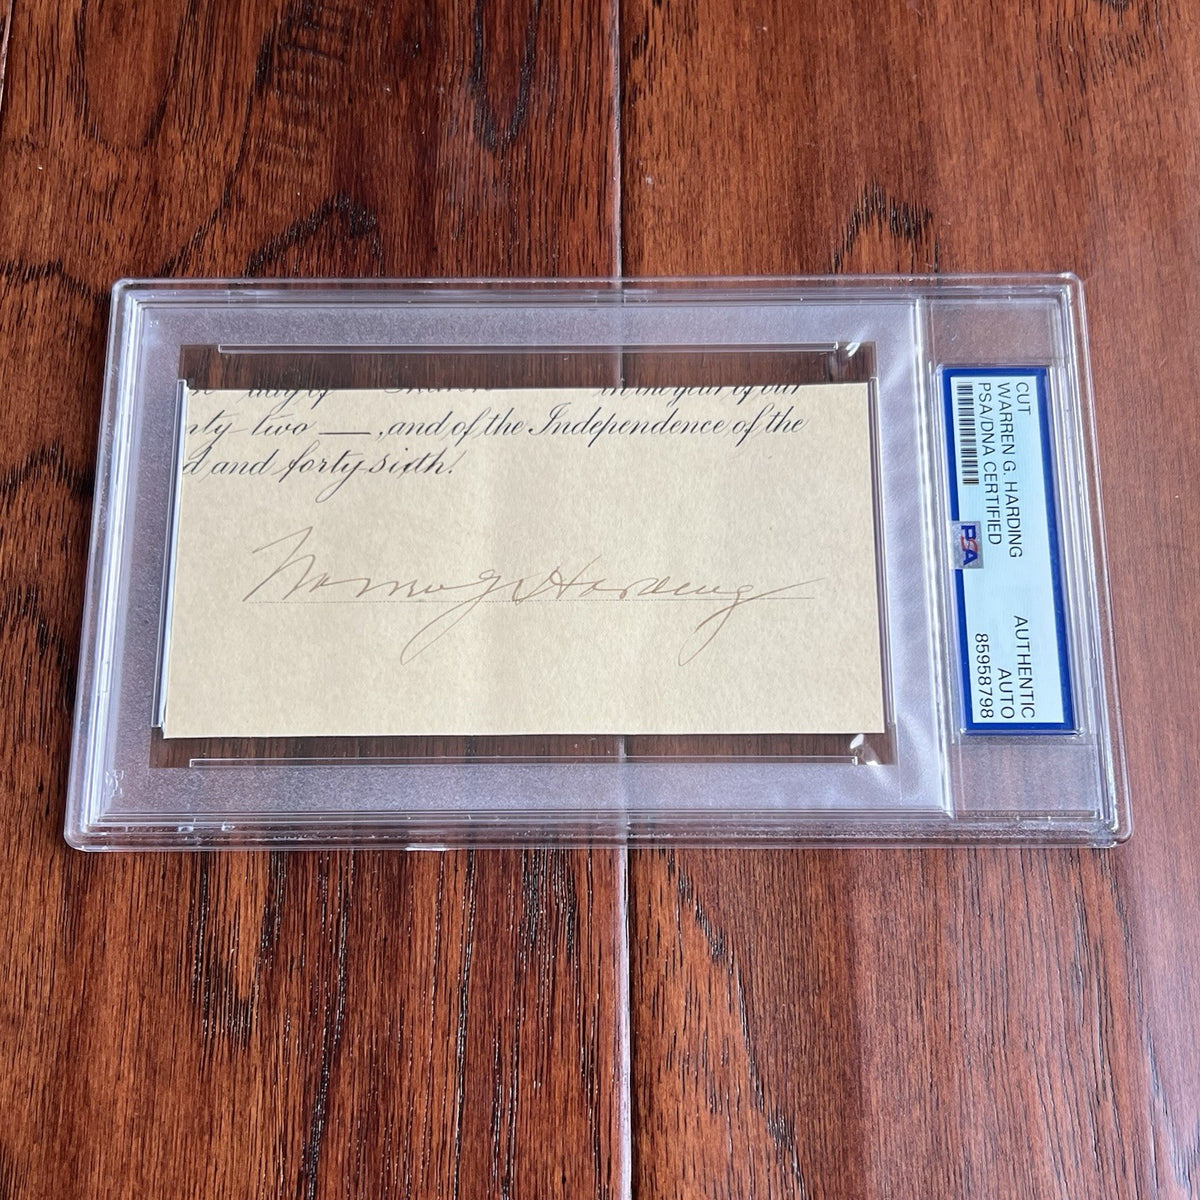 day of in the year of our
nty two —, and of the Independence of the
d and forty-sixth.
Warren G Harding
CUT
WARREN G. HARDING
PSA/DNA CERTIFIED
PSA
AUTHENTIC
AUTO
85958798